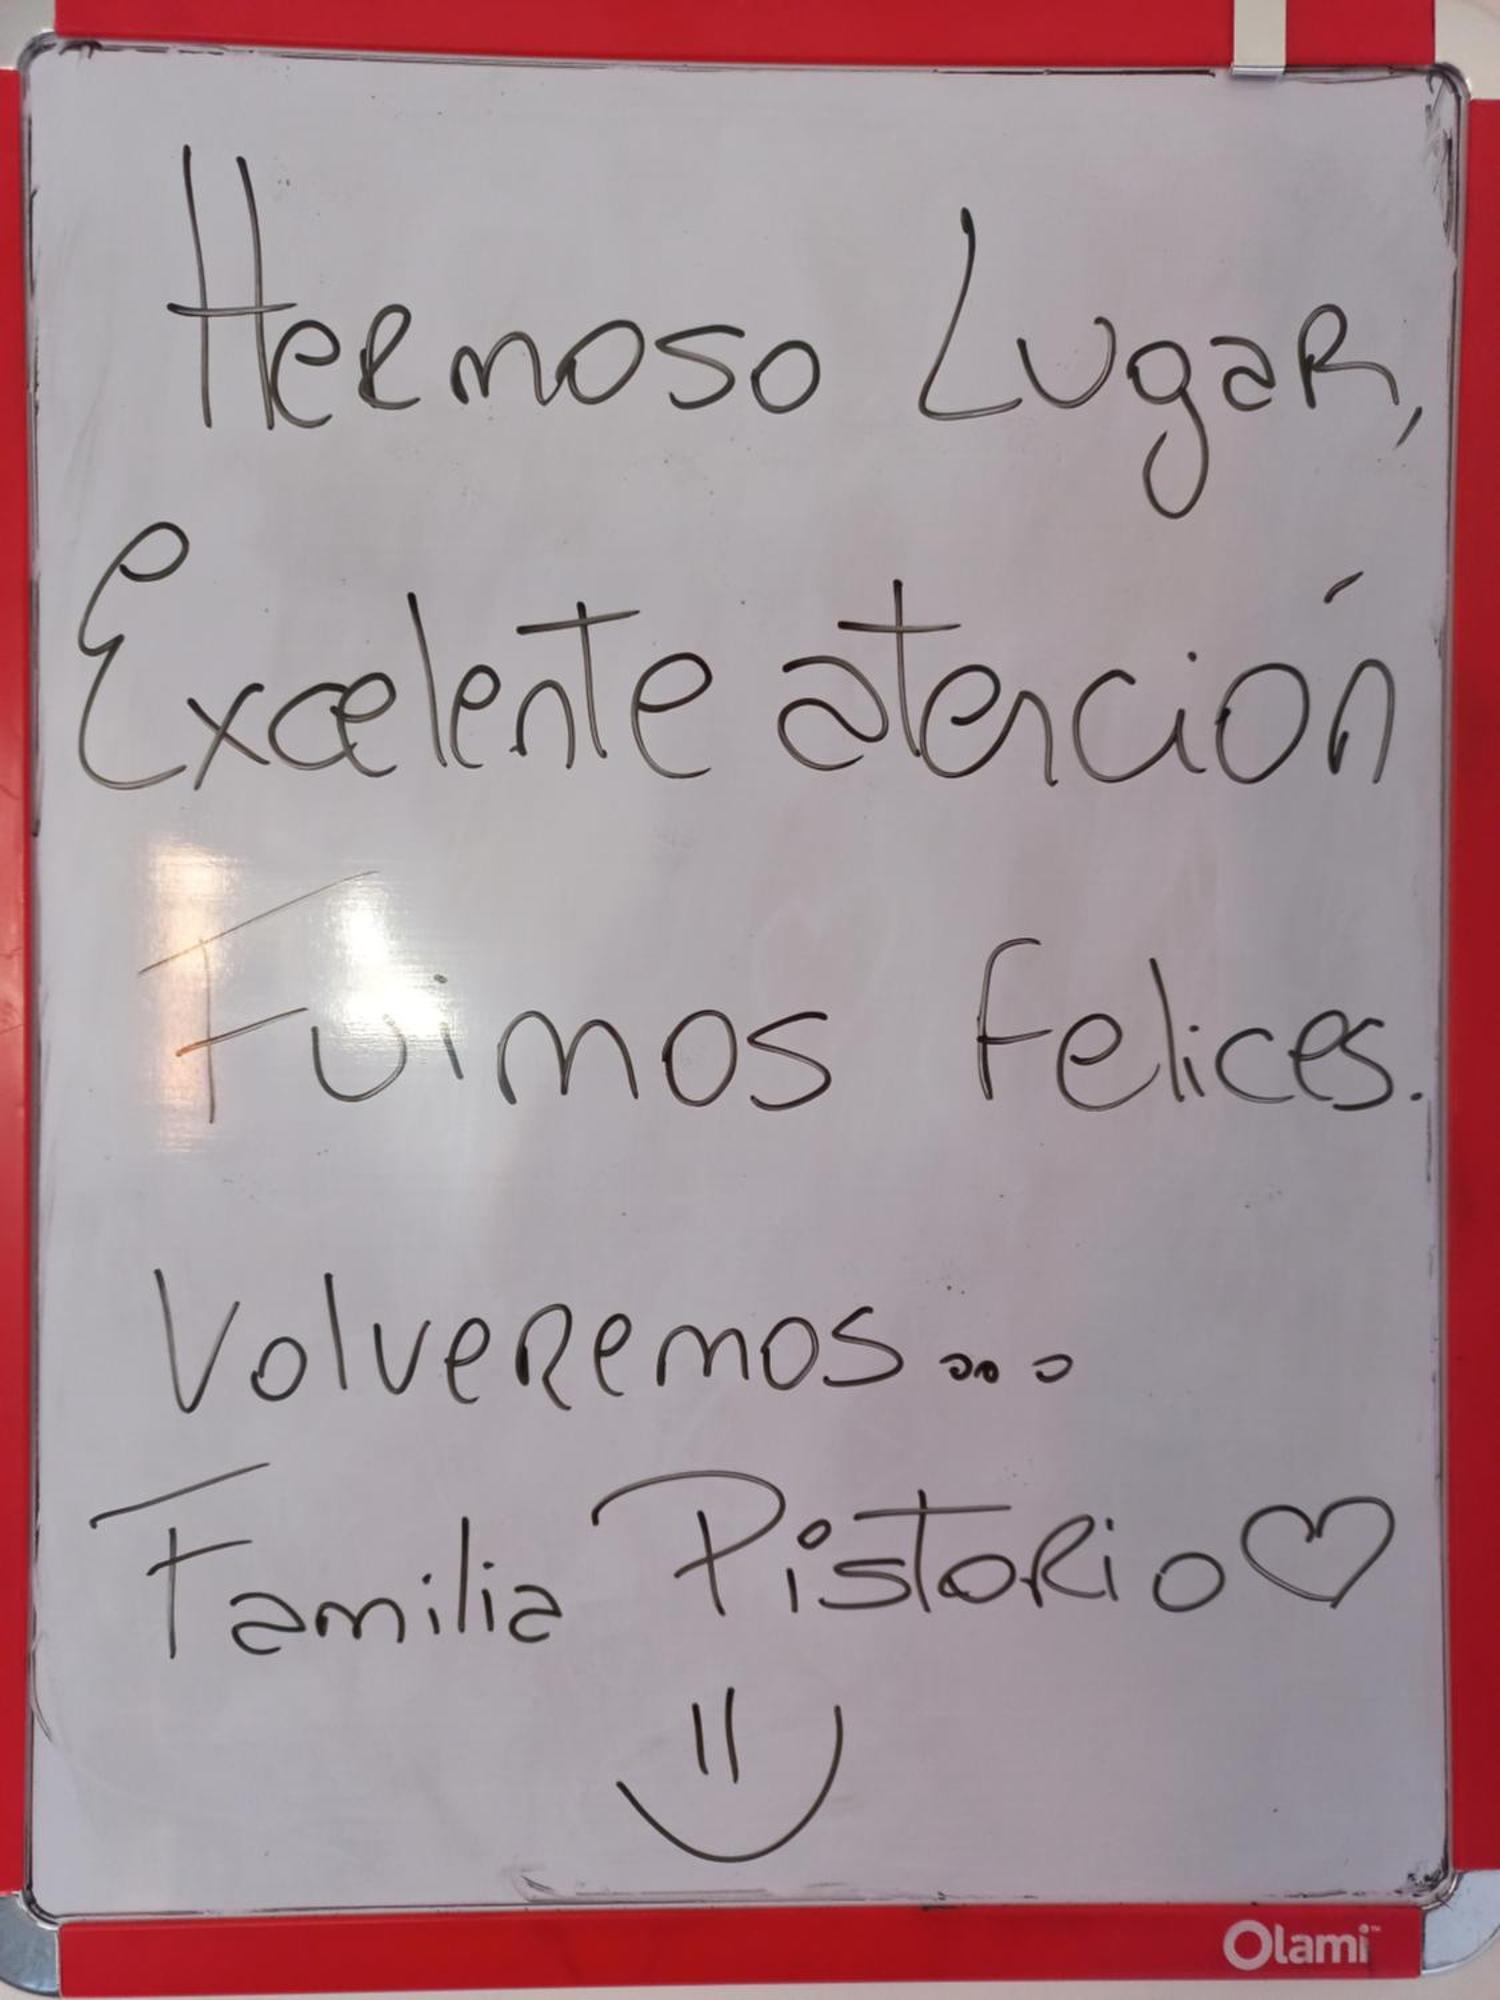 Hermoso Lugar,
Excelente atención
Fuimos felices.
Volveremos...
Familia Pistorio ♡
Olami™